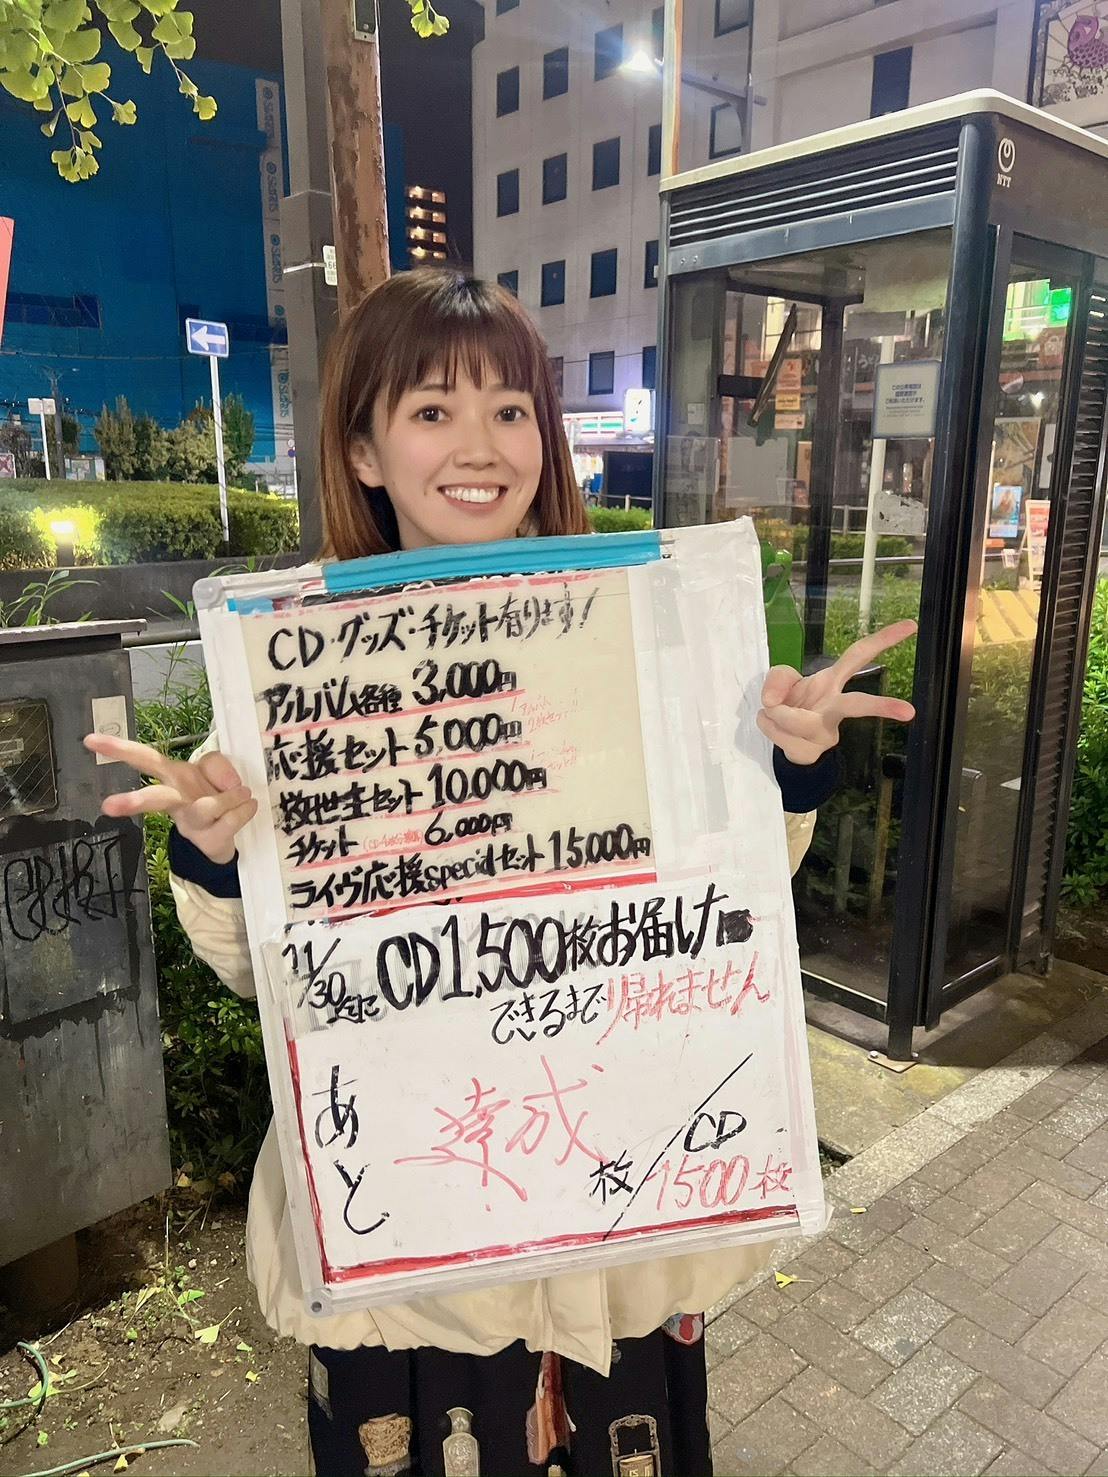 CD・グッズ・チケット有ります!
アルバム各種 3,000円
応援セット 5,000円
救世主セット 10,000円
チケット 6,000円
ライヴ応援specialセット 15,000円
11/30迄に CD1,500枚お届した
できるまで帰れません
あと 達成 枚/CD 1500枚
NTT